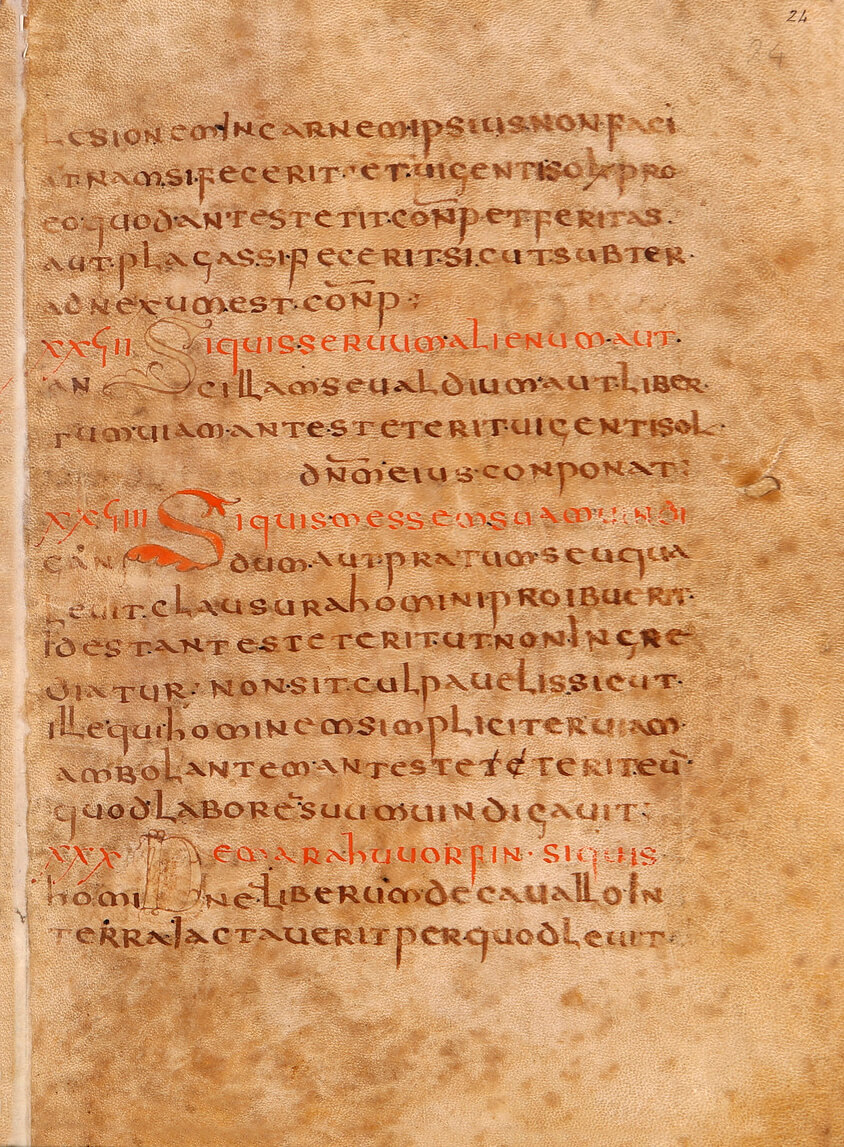 24
LESIONEM INCARNEM IPSIUS NON FACI
AT NAM SI FECERIT · ET · UIGENTI SOL PRO
EO QUOD ANTESTETIT · CONP ET FERITAS ·
AUT · PLAGAS · SI FECERIT · SICUT SUBTER ·
ADNEXUM EST · CONP :
XXUIII SIQUIS SERUUM ALIENUM AUT ·
ANCILLAM SEU ALDIUM AUT · LIBER ·
TUM UIAM ANTESTETERIT · UIGENTI SOL ·
DNO EIUS · CONPONAT :
XXUIIII SIQUIS MESSEM SUAM UINDI
CANDUM · AUT · PRATUM SEU QUA
LEUIT · CLAUSURA HOMINI PROIBUERIT ·
IDEST ANTESTETERIT · UT NON INGRE
DIATUR · NON SIT CULPAUELIS SICUT ·
ILLE QUI HOMINEM SIMPLICITER UIAM ·
AMBOLANTEM ANTESTETETERIT · EU ·
QUOD LABORE SUUM UINDIGAUIT :
XXX DE MARAHUUORFIN · SIQUIS
HOMINE LIBERUM · DE CAUALLO IN
TERRA IACTAUERIT PER QUODLEUIT ·